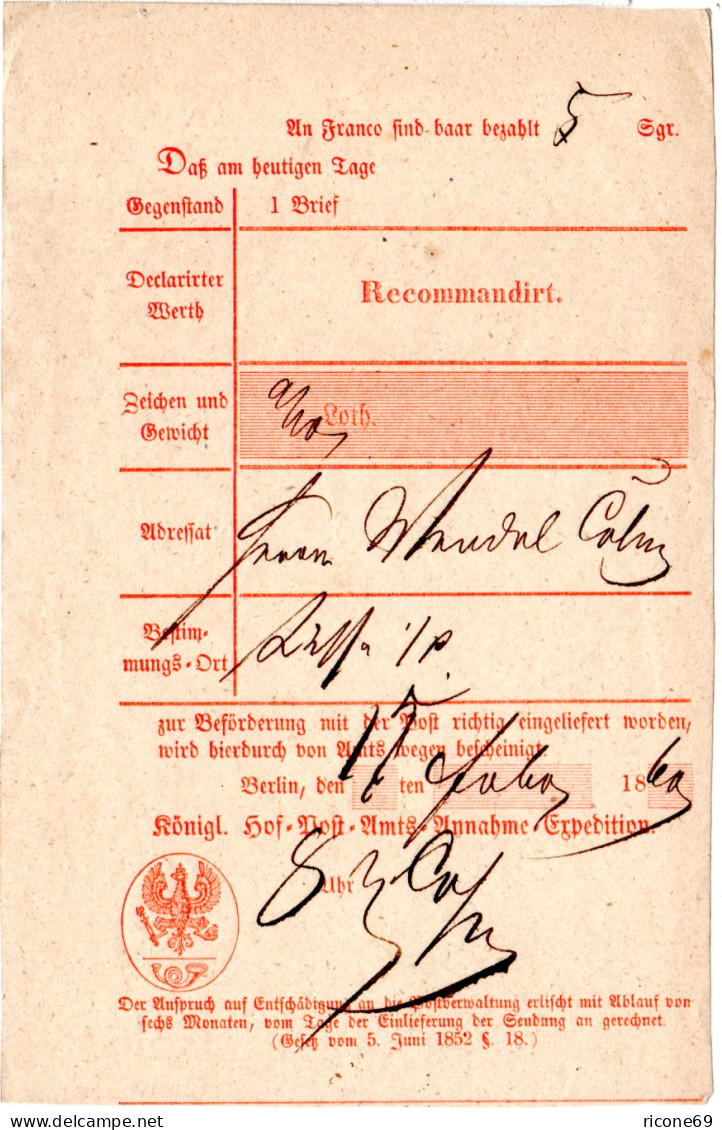 An Franco sind baar bezahlt 5 Sgr.
Daß am heutigen Tage
Gegenstand 1 Brief
Declarirter Werth
Recommandirt.
Zeichen und Gewicht
Loth.
Adressat Herrn Wendel Cohn
Bestim-
mungs-Ort Lissa i/p.
zur Beförderung mit der Post richtig eingeliefert worden,
wird hierdurch von Amts wegen bescheinigt.
Berlin, den 17 ten Febr 1860
Königl. Hof-Post-Amts-Annahme-Expedition.
8 Uhr
Der Anspruch auf Entschädigung an die Postverwaltung erlischt mit Ablauf von
sechs Monaten, vom Tage der Einlieferung der Sendung an gerechnet.
(Gesetz vom 5. Juni 1852 §. 18.)
delcampe.net
ricone69